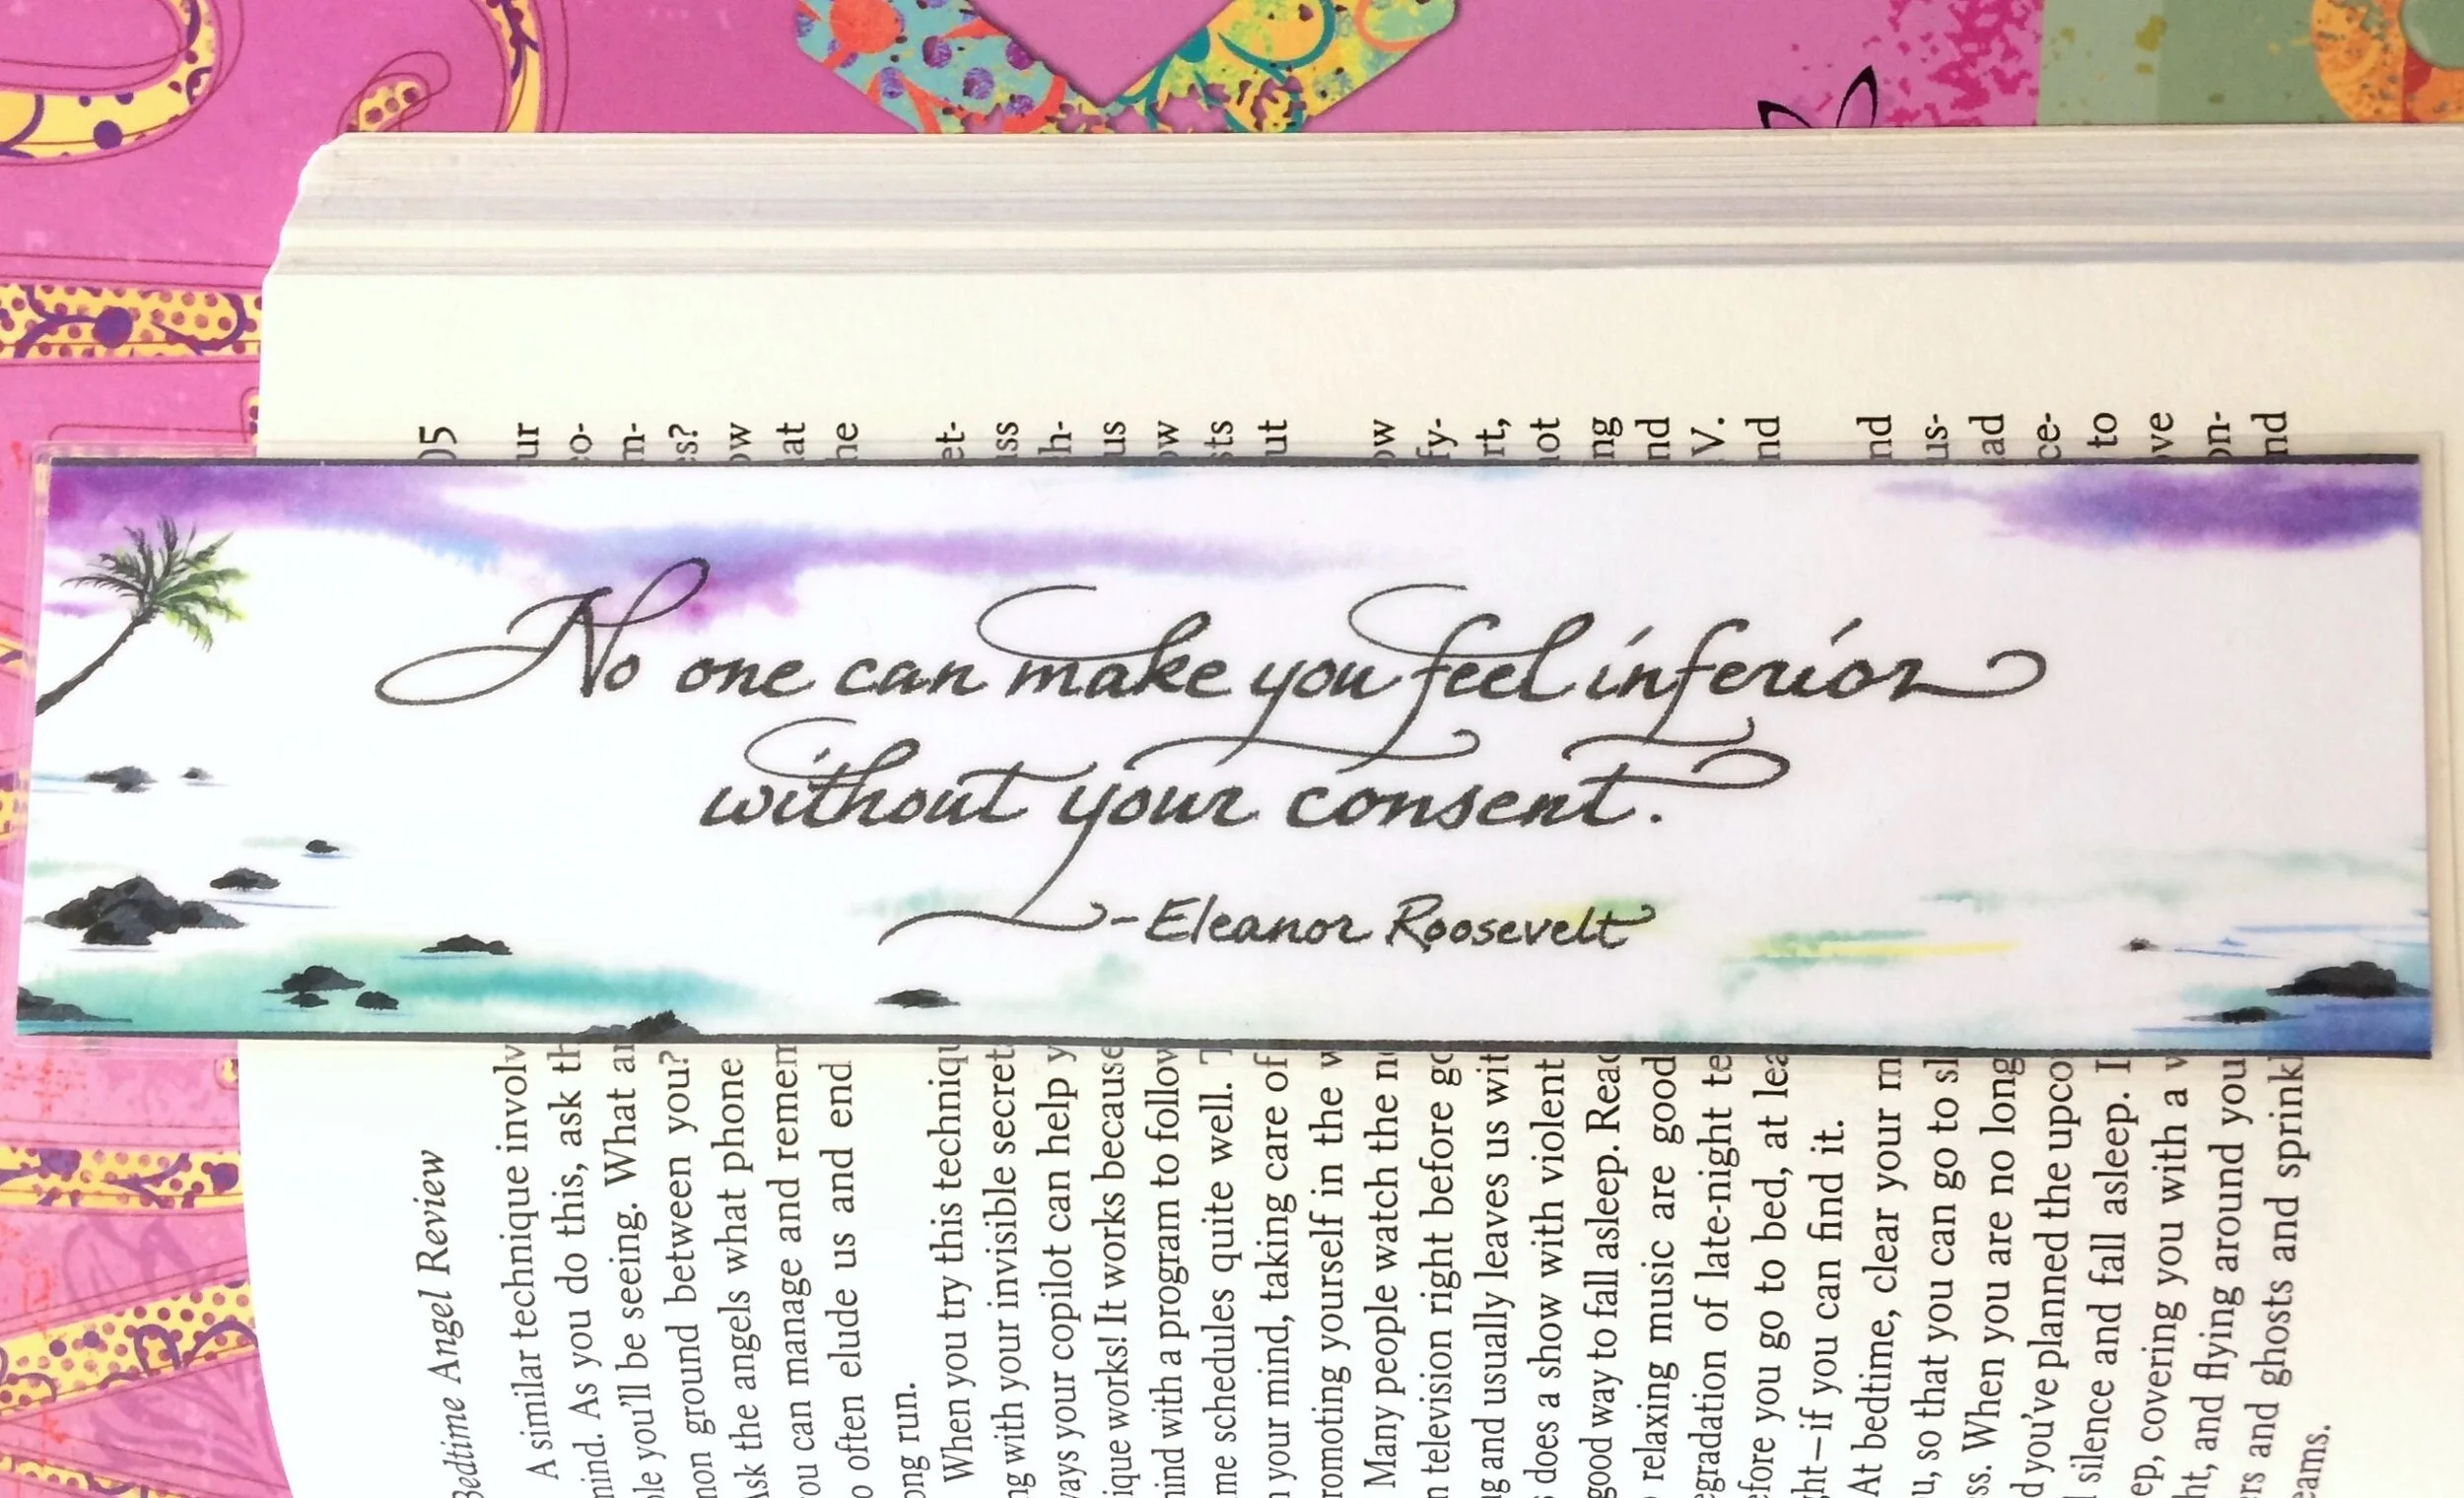 No one can make you feel inferior
without your consent.
-Eleanor Roosevelt
Bedtime Angel Review
A similar technique
mind. As you do this, ask
you'll be seeing. What
ground between you?
Ask the angels what phone
you can manage and
often elude us and end
run.
When you try this
with your invisible
your copilot can help
works! It works because
with a program to follow
schedules quite well.
your mind, taking care of
yourself in the
Many people watch the
television right before
and usually leaves us
does a show with violent
good way to fall asleep.
relaxing music are good
of late-night
you go to bed, at
if you can find it.
At bedtime, clear your
so that you can go to
When you are no
you've planned the
silence and fall asleep.
covering you with a
and flying around you
and ghosts and